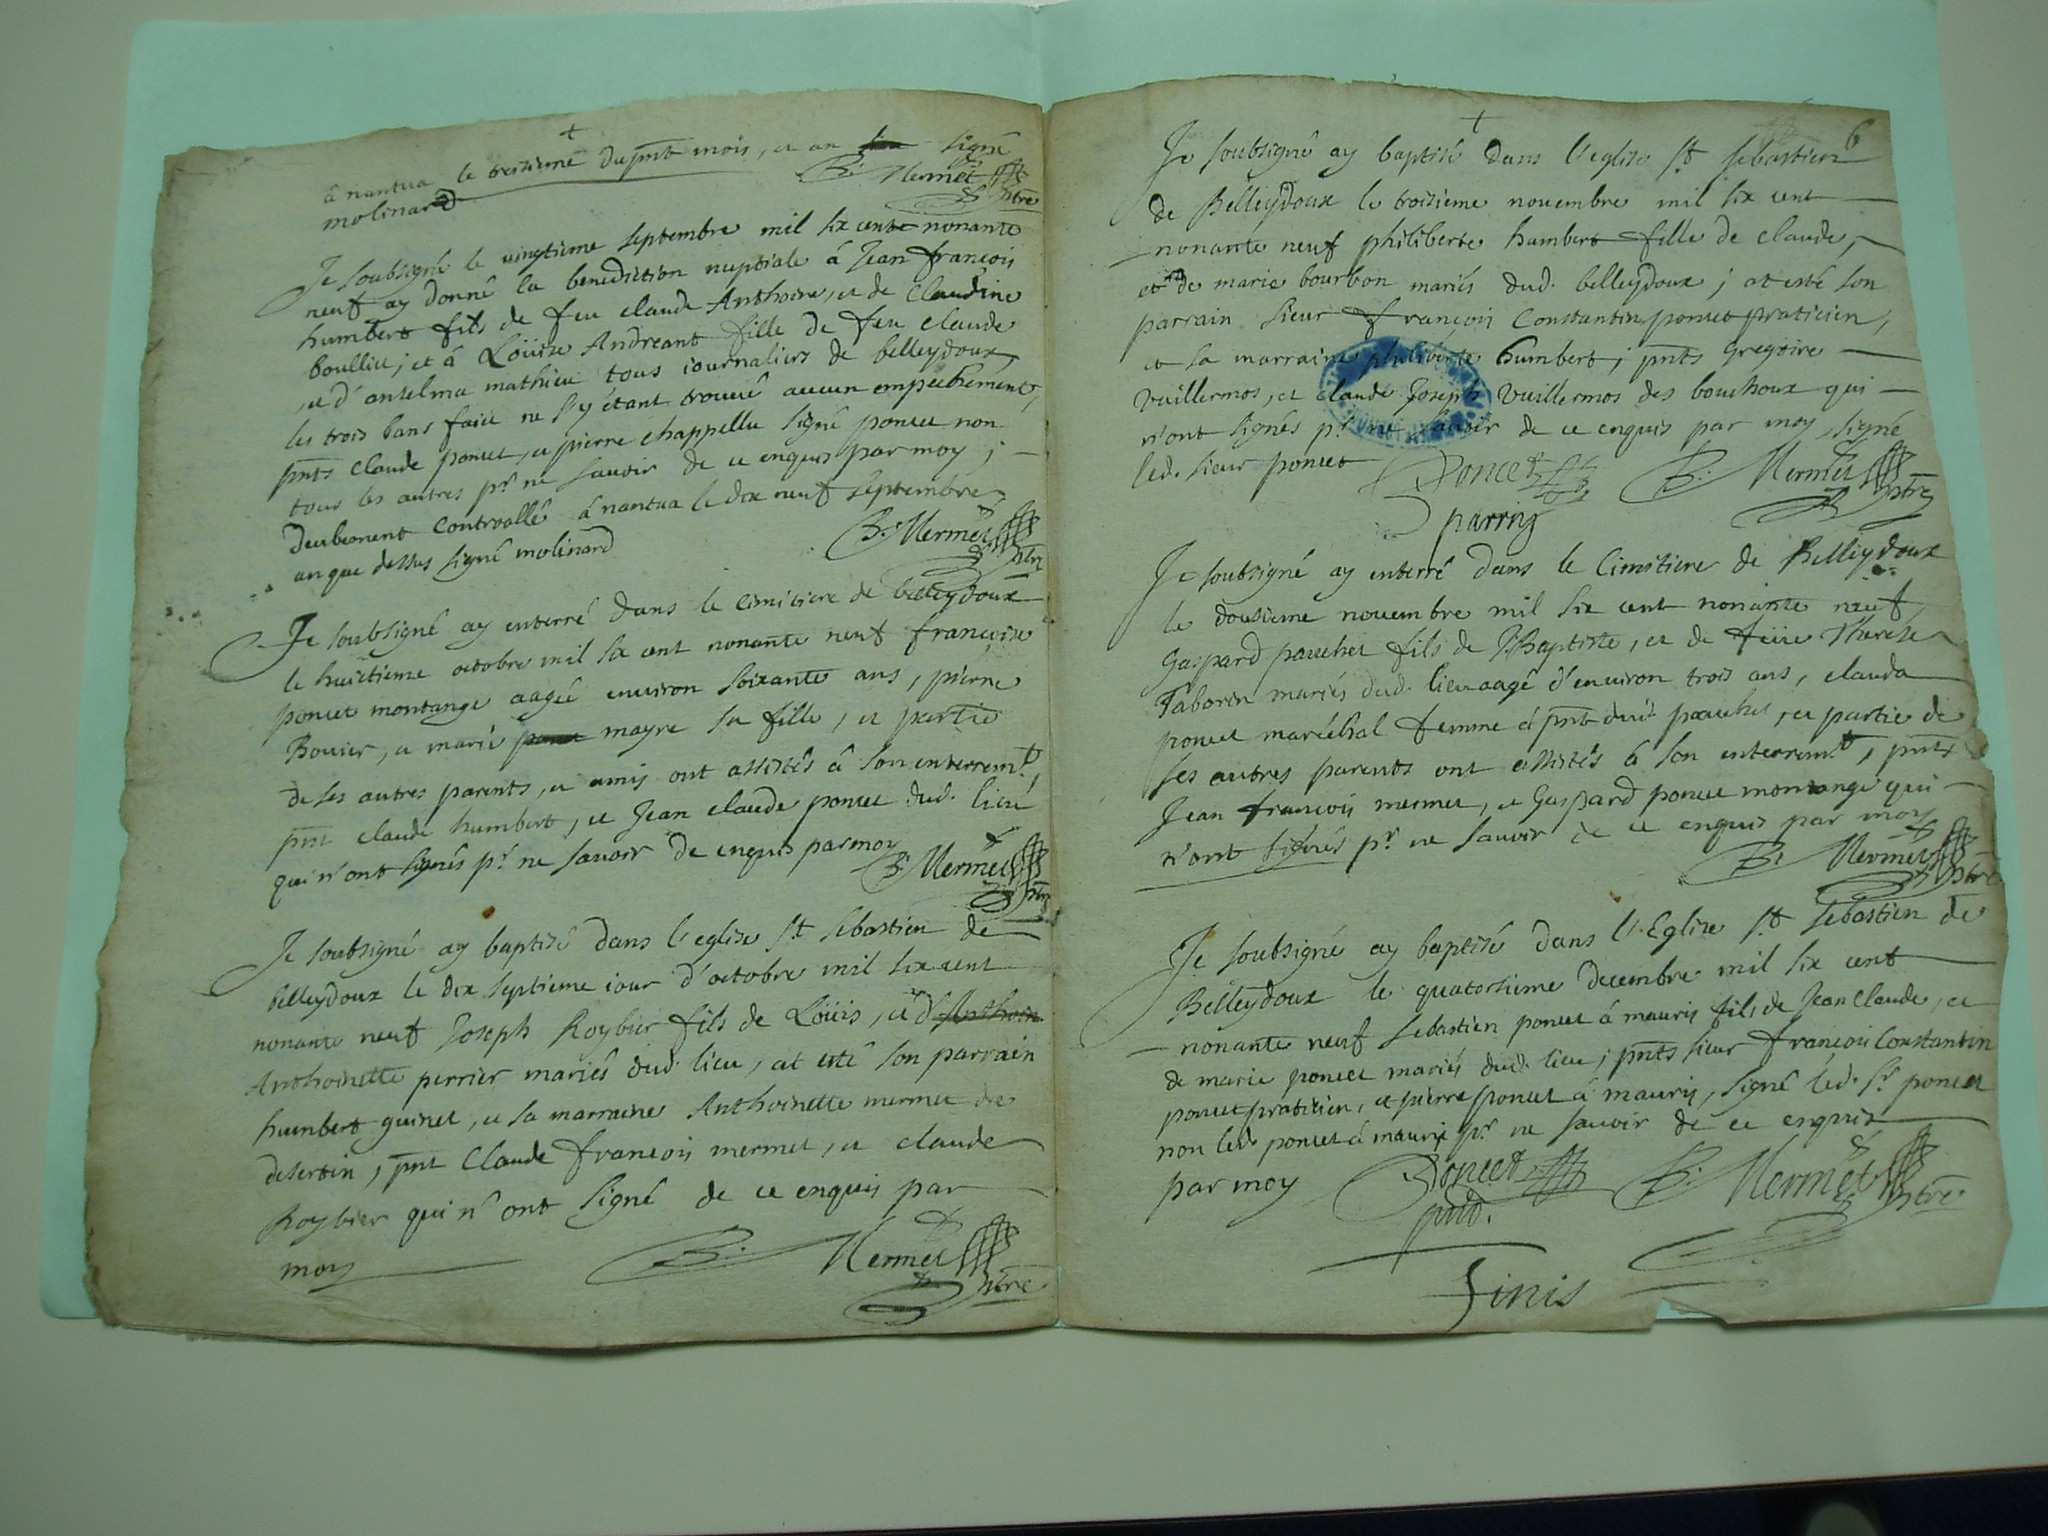 +
â nantua le treisieme du pnt mois, et an signé
molinard
B. Mermet ptre
Je soubsigné le vingtieme septembre mil six cent nonante
neuf ay donné la benediction nuptiale â Jean françois
humbert fils de feu claude Anthoine, et de Claudine
boullie; et â Loüise Andreant fille de feu claude
, et d'antelma mathieu tous iournaliers de belleydoux,
les trois bans faict ne s'y étant trouué aucun empechêment,
pnts Claude poncet, et pierre chappellu signé poncet non
tous les autres pr ne sauoir de ce enquis par moy;
deubement controollê â nantua le dix neuf septembre
an que dessus signé molinard
B. Mermet ptre
Je soubsigné ay enterré dans le cimitiere de belleydoux
le huictieme octobre mil six cent nonante neuf françoise
poncet montange aagée enuiron soixante ans, pierre
Bouier, et marie mayre sa fille, et partie
de ses autres parents, et amis ont assistés â son enterremt,
pnt claude humbert, et Jean claude poncet dud. lieu
qui n'ont signés pr ne sauoir de enquis par moy
B. Mermet ptre
Je soubsigné ay baptisé dans l'eglise St sebastien de
belleydoux le dix septieme iour d'octobre mil six cent
nonante neuf Joseph Roybier fils de Loüis, et d'Anthoin
Anthoinette perrier mariés dud. lieu, at etê son parrain
humbert guinet, et sa marraine Anthoinette mermet de
desertin, pnt Claude françois mermet, et claude
Roybier qui n'ont signé de ce enquis par
moy
B. Mermet ptre
+
6
Je soubsigné ay baptisé dans l'eglise St sebastien
de Belleydoux le troisieme nouembre mil six cent
nonante neuf philiberte humbert fille de claude,
et de marie bourbon mariés dud. belleydoux; at esté son
parrain sieur françois Constantin poncet praticien,
et sa marraine philiberte humbert; pnts gregoire
vuillermos, et claude Joseph vuillermos des bouchoux qui
n'ont signés pr ne sauoir de ce enquis par moy, signé
led. sieur poncet
Poncet
parrin
B. Mermet ptre
Je soubsigné ay enterré dans le Cimitiere de Belleydoux
le dousieme nouembre mil six cent nonante neuf,
Gaspard pauchet fils de JBaptiste, et de feüe Therese
Taborin mariés dud. lieu aagé d'enuiron trois ans, clauda
poncet maréchal femme â pnt dud. pauchet, et partie de
ses autres parents ont assistés â son enterremt, pnts
Jean françois mermet, et Gaspard poncet montange qui
n'ont signés pr ne sauoir de ce enquis par moy
B. Mermet ptre
Je soubsigné ay baptisé dans l'Eglise St sebastien de
Belleydoux le quatorsieme decembre mil six cent
nonante neuf sebastien poncet â mauris fils de Jean Claude, et
de marie poncet mariés dud. lieu; pnts sieur françois Constantin
poncet praticien, et pierre poncet â mauris, signé led. Sr poncet
non led. poncet â mauris pr ne sauoir de ce enquis
par moy
Poncet
pnt.
B. Mermet ptre
Finis